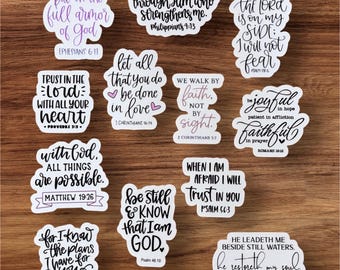 put on the
full armor
of God
EPHESIANS 6:11
through him who
strengthens me.
Philippians 4:13
the Lord
is on my
SIDE;
I will not
fear
TRUST IN THE
Lord
WITH ALL YOUR
HEART
PROVERBS 3:5
let all
that you do
be done
in love
1 CORINTHIANS 16:14
WE WALK BY
faith,
NOT
BY
sight
2 CORINTHIANS 5:7
be joyful
in hope
patient in affliction
faithful
in prayer
ROMANS 12:12
with God,
ALL THINGS
are possible
MATTHEW 19:26
be still
& KNOW
that I am
GOD.
Psalm 46:10
WHEN I AM
AFRAID I WILL
TRUST IN YOU
PSALM 56:3
for I know
the plans
I have for
HE LEADETH ME
BESIDE STILL WATERS.
he restoreth my soul